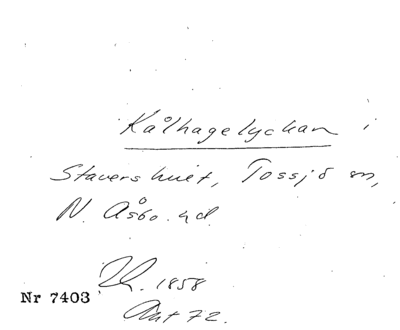 Kålhagelyckan i
Stavershult, Tossjö sn,
N. Åsbo hd.
1858
Nr 7403
Akt 72.